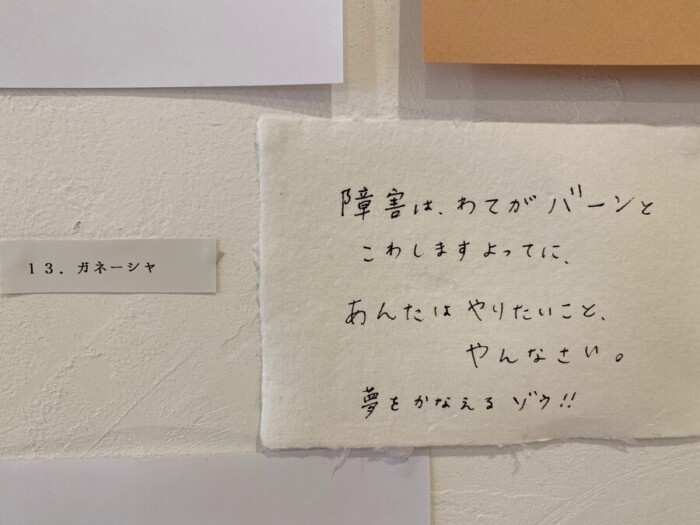 13．ガネーシャ
障害は、わてがバーンと
こわしますよってに、
あんたはやりたいこと、
やんなさい。
夢をかなえるゾウ!!